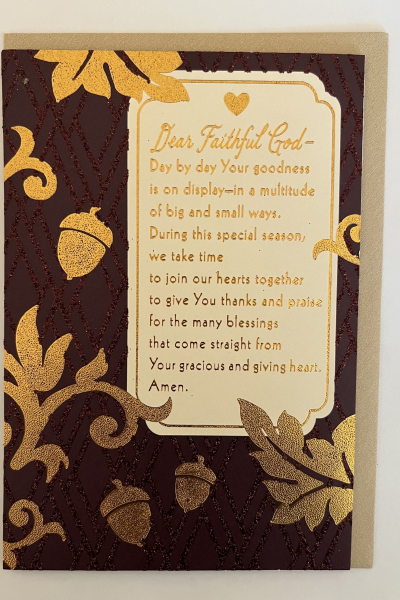 Dear Faithful God—
Day by day Your goodness
is on display—in a multitude
of big and small ways.
During this special season,
we take time
to join our hearts together
to give You thanks and praise
for the many blessings
that come straight from
Your gracious and giving heart.
Amen.